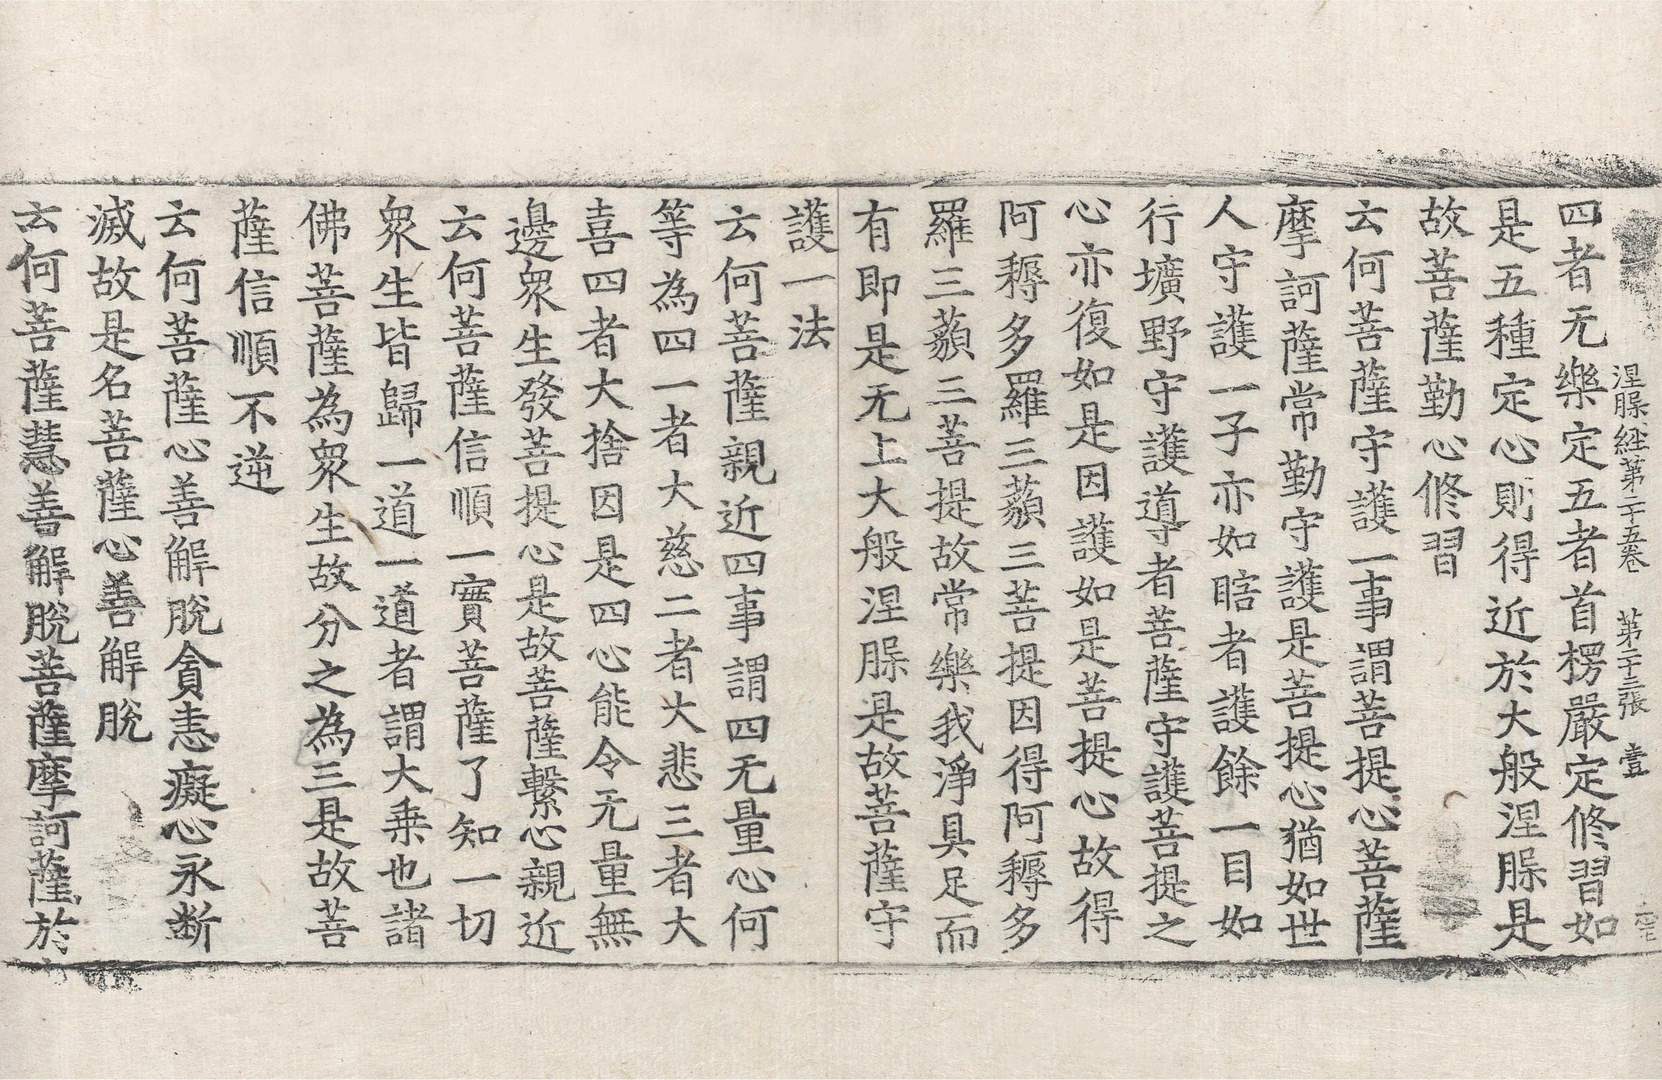 涅槃経第二十五卷 第二十三張 壹
四者无樂定五者首楞嚴定修習如
是五種定心則得近於大般涅槃是
故菩薩勤心修習
云何菩薩守護一事謂菩提心菩薩
摩訶薩常勤守護是菩提心猶如世
人守護一子亦如瞎者護餘一目如
行壙野守護導者菩薩守護菩提之
心亦復如是因護如是菩提心故得
阿耨多羅三藐三菩提因得阿耨多
羅三藐三菩提故常樂我淨具足而
有即是无上大般涅槃是故菩薩守
護一法
云何菩薩親近四事謂四无量心何
等為四一者大慈二者大悲三者大
喜四者大捨因是四心能令无量無
邊衆生發菩提心是故菩薩繫心親近
云何菩薩信順一實菩薩了知一切
衆生皆歸一道一道者謂大乗也諸
佛菩薩為衆生故分之為三是故菩
薩信順不逆
云何菩薩心善解脫貪恚癡心永断
滅故是名菩薩心善解脫
云何菩薩慧善解脫菩薩摩訶薩於